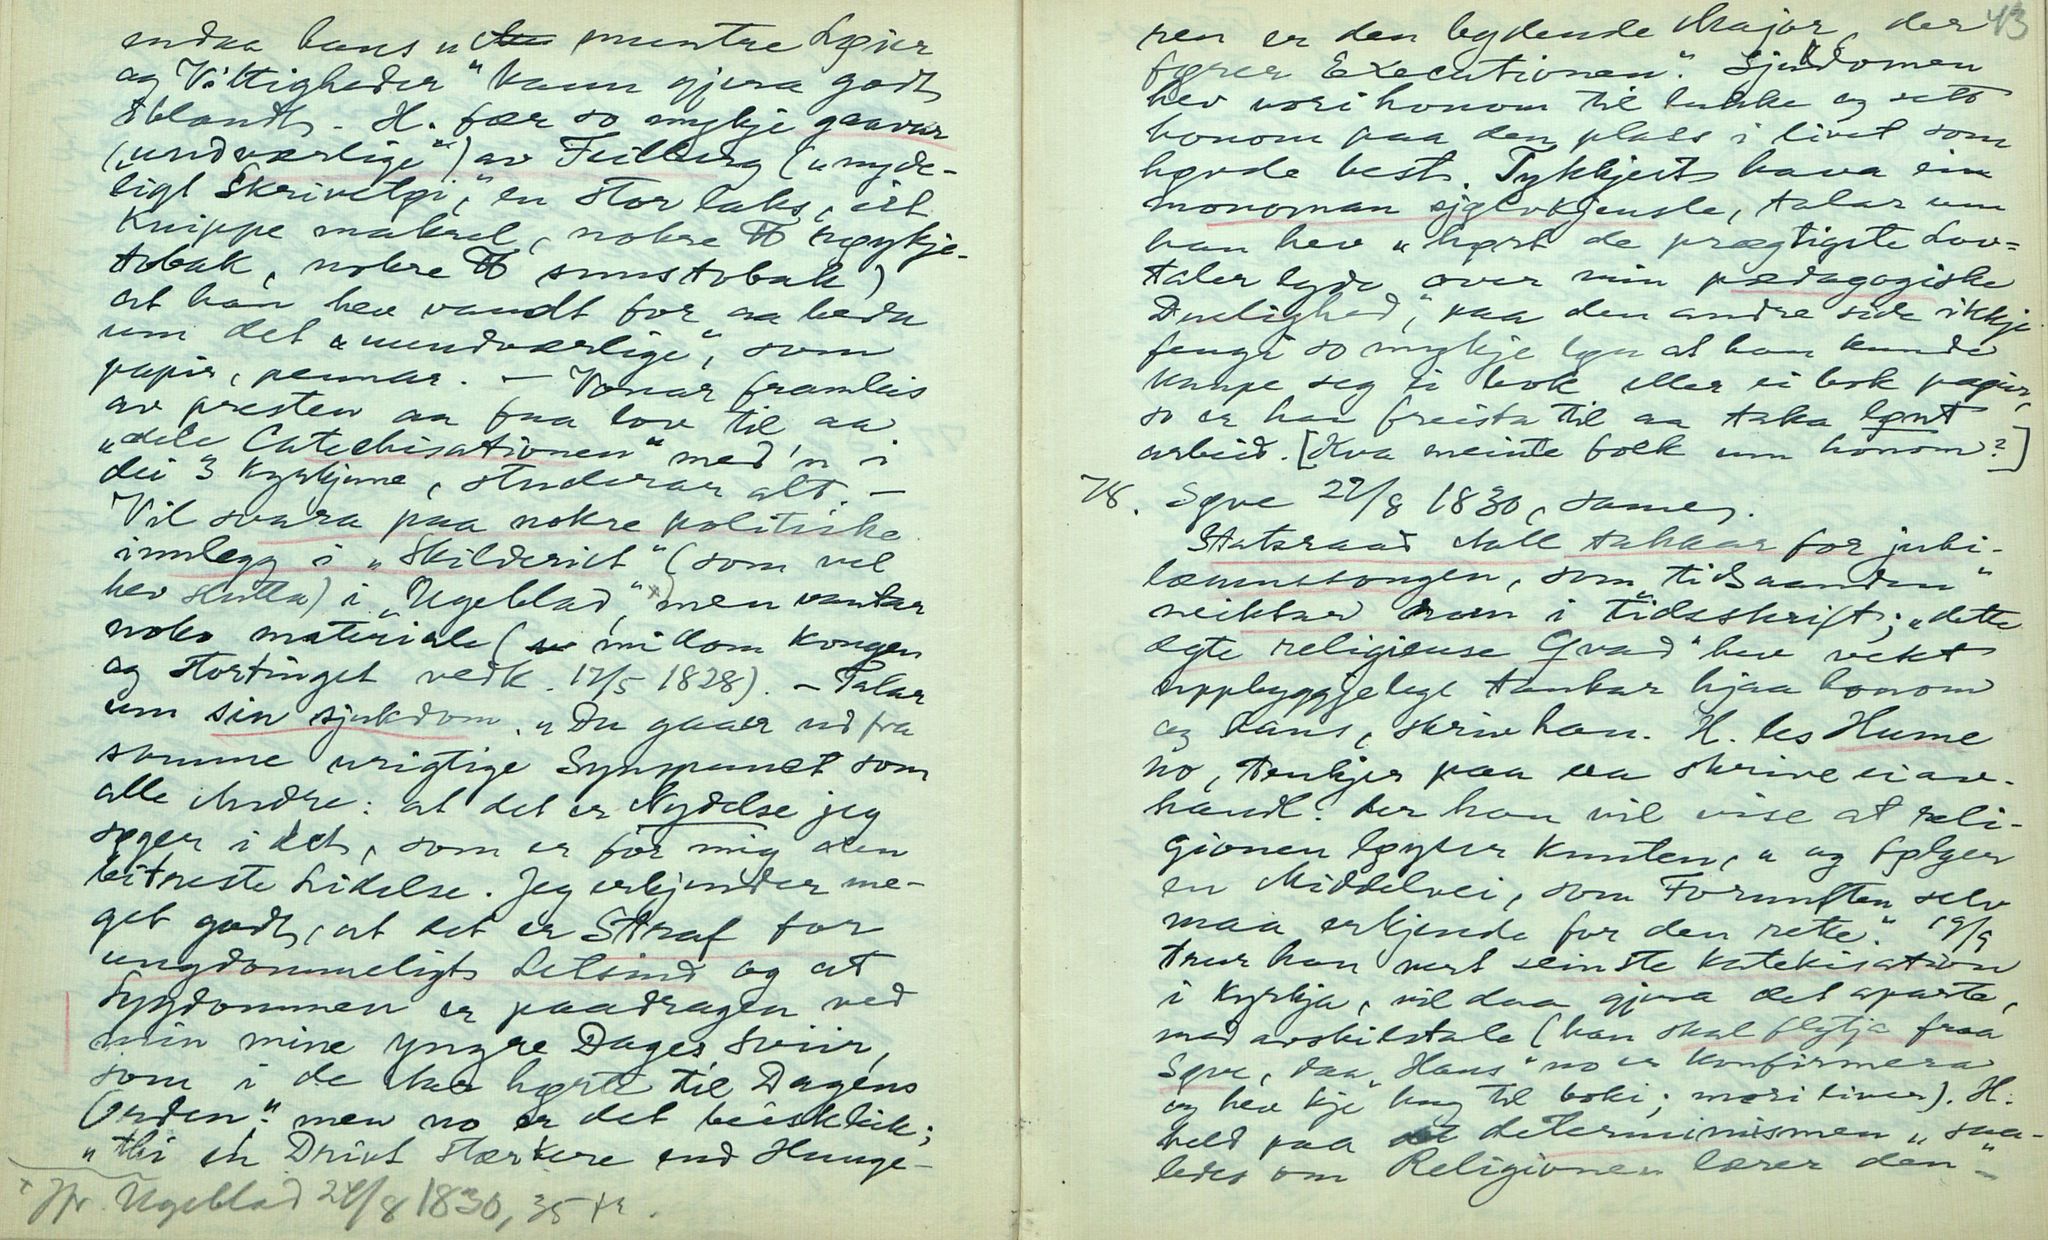 endaa hans "muntre Løier
og Vittigheder" kann gjera godt
iblandt. - H. fær so mykje gaavur
("undværlige") av Feilberg ("nyde-
ligt Skrivetøi," en stor laks, eit
knippe makrel, nokre ℔ røykje-
tobak, nokre ℔ snustobak)
at han hev vandt for aa beda
um det "uundværlige", som
papir, pennar. - Vonar framleis
av presten aa faa lov til aa
"dele Catechisationen" med'n i
dei 3 kyrkjune, studerar alt. -
Vil svara paa nokre politiske
innlegg i "Skilderiet" (som vel
hev slutta) i "Ugeblad," x) men vantar
noko materiale ( millom kongen
og stortinget vedk. 17/5 1828). - Talar
um sin sjukdom. "Du gaaer ud fra
samme urigtige Synspunct som
alle Andre: at det er Nydelse jeg
søger i det, som er for mig den
bitreste Lidelse. Jeg erkjender me-
get godt, at det er Straf for
ungdommeligt Letsind og at
Sygdommen er paadragen ved
min mine yngre Dages Sviir,
som i de hørte til Dagens
Orden." men no er det beisklik;
"thi en Drivt stærkere end Hunge-
x Jfr. Ugeblad 24/8 1830, 35 tr.
43
ren er den bydende Major, der
fører Executionen." Sjukdomen
hev vori honom til lukke og sett
honom paa den plass i livet som
høvde best. Tykkjest hava ein
monoman sjølvkjensle, talar um
han hev "hørt de prægtigste Lov-
taler lyde over min pædagogiske
Duelighed," paa den andre side ikkje
fengi so mykje løn at han kunde
kaupe seg ei bok eller ei bok papir,
so er han freista til aa taka lønt
arbeid. [Kva meinte folk um honom?]
78. Søve 29/8 1830, same.
Statsraad Moll takkar for jubi-
læumssongen, som "tidsaanden"
neiktar rom i tidsskrift; "dette
ægte religieuse Qvad" hev vekt
uppbyggjelege tankar hjaa honom
og hans, skriv han. H. les Hume
no, tenkjer paa aa skrive ei av-
handl. der han vil vise at reli-
gionen løyser knuten, "og følger
en Middelvei, som Fornuften selv
maa erkjende for den rette." 19/9
trur han vert seinste katekisation
i kyrkja, vil daa gjera det aparte,
med avskilstale (han skal flytja fraa
Søve, daa "Hans" no er konfirmera
og hev kje hug til boki; mori liver). H.
held paa determinismen "saa-
ledes om Religionen lærer den" -